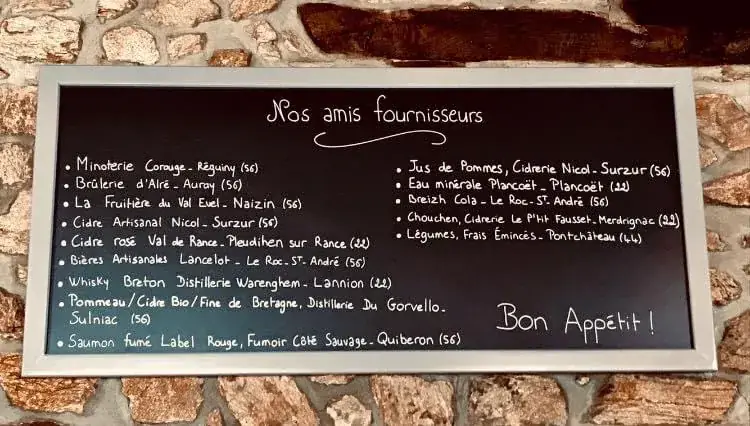 Nos amis fournisseurs
• Minoterie Corouge - Réguiny (56)
• Brûlerie d'Alré - Auray (56)
• La Fruitière du Val Evel - Naizin (56)
• Cidre Artisanal Nicol - Surzur (56)
• Cidre rosé Val de Rance - Pleudihen sur Rance (22)
• Bières Artisanales Lancelot - Le Roc-St-André (56)
• Whisky Breton Distillerie Warenghem - Lannion (22)
• Pommeau/Cidre Bio/Fine de Bretagne, Distillerie Du Gorvello -
Sulniac (56)
• Saumon fumé Label Rouge, Fumoir Côté Sauvage - Quiberon (56)
• Jus de Pommes, Cidrerie Nicol - Surzur (56)
• Eau minérale Plancoët - Plancoët (22)
• Breizh Cola - Le Roc-St-André (56)
• Chouchen, Cidrerie Le P'tit Fausset - Merdrignac (22)
• Légumes, Frais Émincés - Pontchâteau (44)
Bon Appétit !